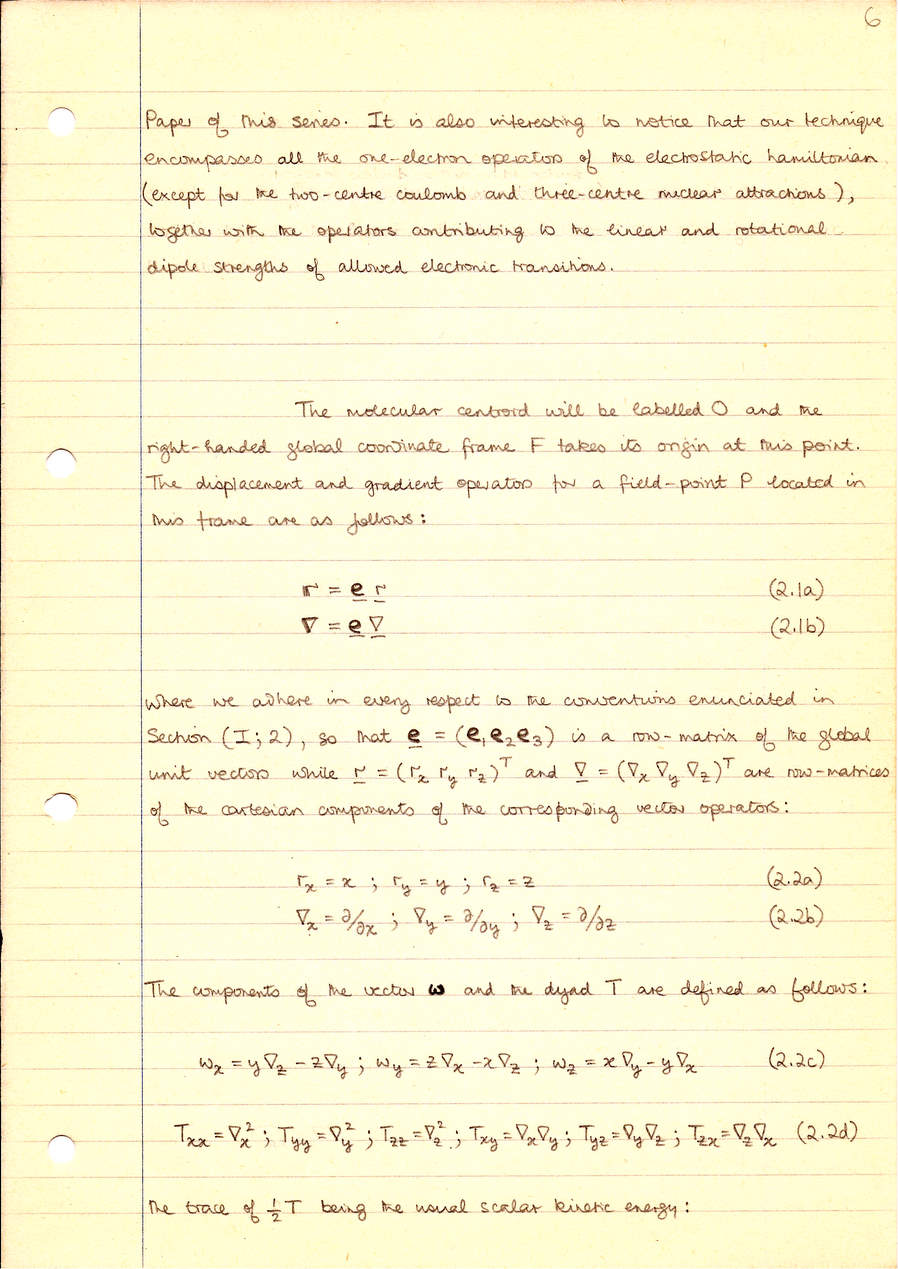 6
Paper of this series. It is also interesting to notice that our technique
encompasses all the one-electron operators of the electrostatic hamiltonian
(except for the two-centre coulomb and three-centre nuclear attractions),
together with the operators contributing to the linear and rotational
dipole strengths of allowed electronic transitions.
The molecular centroid will be labelled O and the
right-handed global coordinate frame F takes its origin at this point.
The displacement and gradient operators for a field-point P located in
this frame are as follows:
𝐫 = 𝐞 r (2.1a)
𝛁 = 𝐞 ∇ (2.1b)
where we adhere in every respect to the conventions enunciated in
Section (I; 2), so that 𝐞 = (𝐞₁𝐞₂𝐞₃) is a row-matrix of the global
unit vectors while r = (rₓ r_y r_z)ᵀ and ∇ = (∇ₓ ∇_y ∇_z)ᵀ are row-matrices
of the cartesian components of the corresponding vector operators:
rₓ = x ; r_y = y ; r_z = z (2.2a)
∇ₓ = ∂/∂x ; ∇_y = ∂/∂y ; ∇_z = ∂/∂z (2.2b)
The components of the vector 𝛚 and the dyad T are defined as follows:
ωₓ = y∇_z − z∇_y ; ω_y = z∇ₓ − x∇_z ; ω_z = x∇_y − y∇ₓ (2.2c)
Tₓₓ = ∇ₓ² ; T_yy = ∇_y² ; T_zz = ∇_z² ; T_xy = ∇ₓ∇_y ; T_yz = ∇_y∇_z ; T_zx = ∇_z∇ₓ (2.2d)
the trace of ½T being the usual scalar kinetic energy: